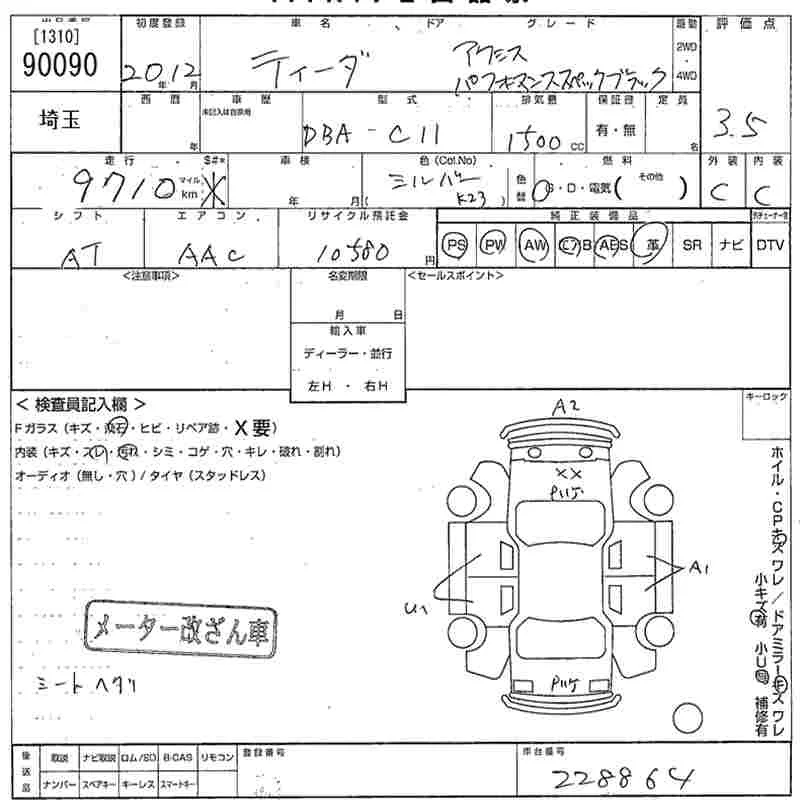 [1310]
90090
初度登録 車名 ドア グレード 駆動 評価点
20年12月 ティーダ アクシス
パフォーマンススペックブラック
2WD
・
4WD
3.5
埼玉
西暦 車歴 型式 排気量 保証書 定員
年 未記入は自家用 DBA-C11 1500cc 有・無 名
走行 S#* 車検 色(Col.No) 燃料 外装 内装
9710 マイル km X 年 月 シルバー (K23) 色替 G・D・電気( その他 ) C C
シフト エアコン リサイクル預託金 純正装備品
AT AAC 10580円 PS PW AW エアB ABS 革 SR ナビ DTV
<注意事項> 名変期限 <セールスポイント>
月 日
輸入車
ディーラー・並行
左H ・ 右H
< 検査員記入欄 > キーロック
Fガラス(キズ・飛石・ヒビ・リペア跡・X要)
内装(キズ・スレ・汚れ・シミ・コゲ・穴・キレ・破れ・割れ)
オーディオ(無し・穴)/タイヤ(スタッドレス)
A2
XX
Pハゲ
A1
U1
Pハゲ
メーター改ざん車
シートヘタリ
ホイル・CPキズ ワレ/ドアミラーキズ ワレ
小キズ有 小U有 補修有
後送品 取説 ナビ取説 ロム/SD B-CAS リモコン 登録番号 車台番号
ナンバー スペアキー キーレス スマートキー 228864